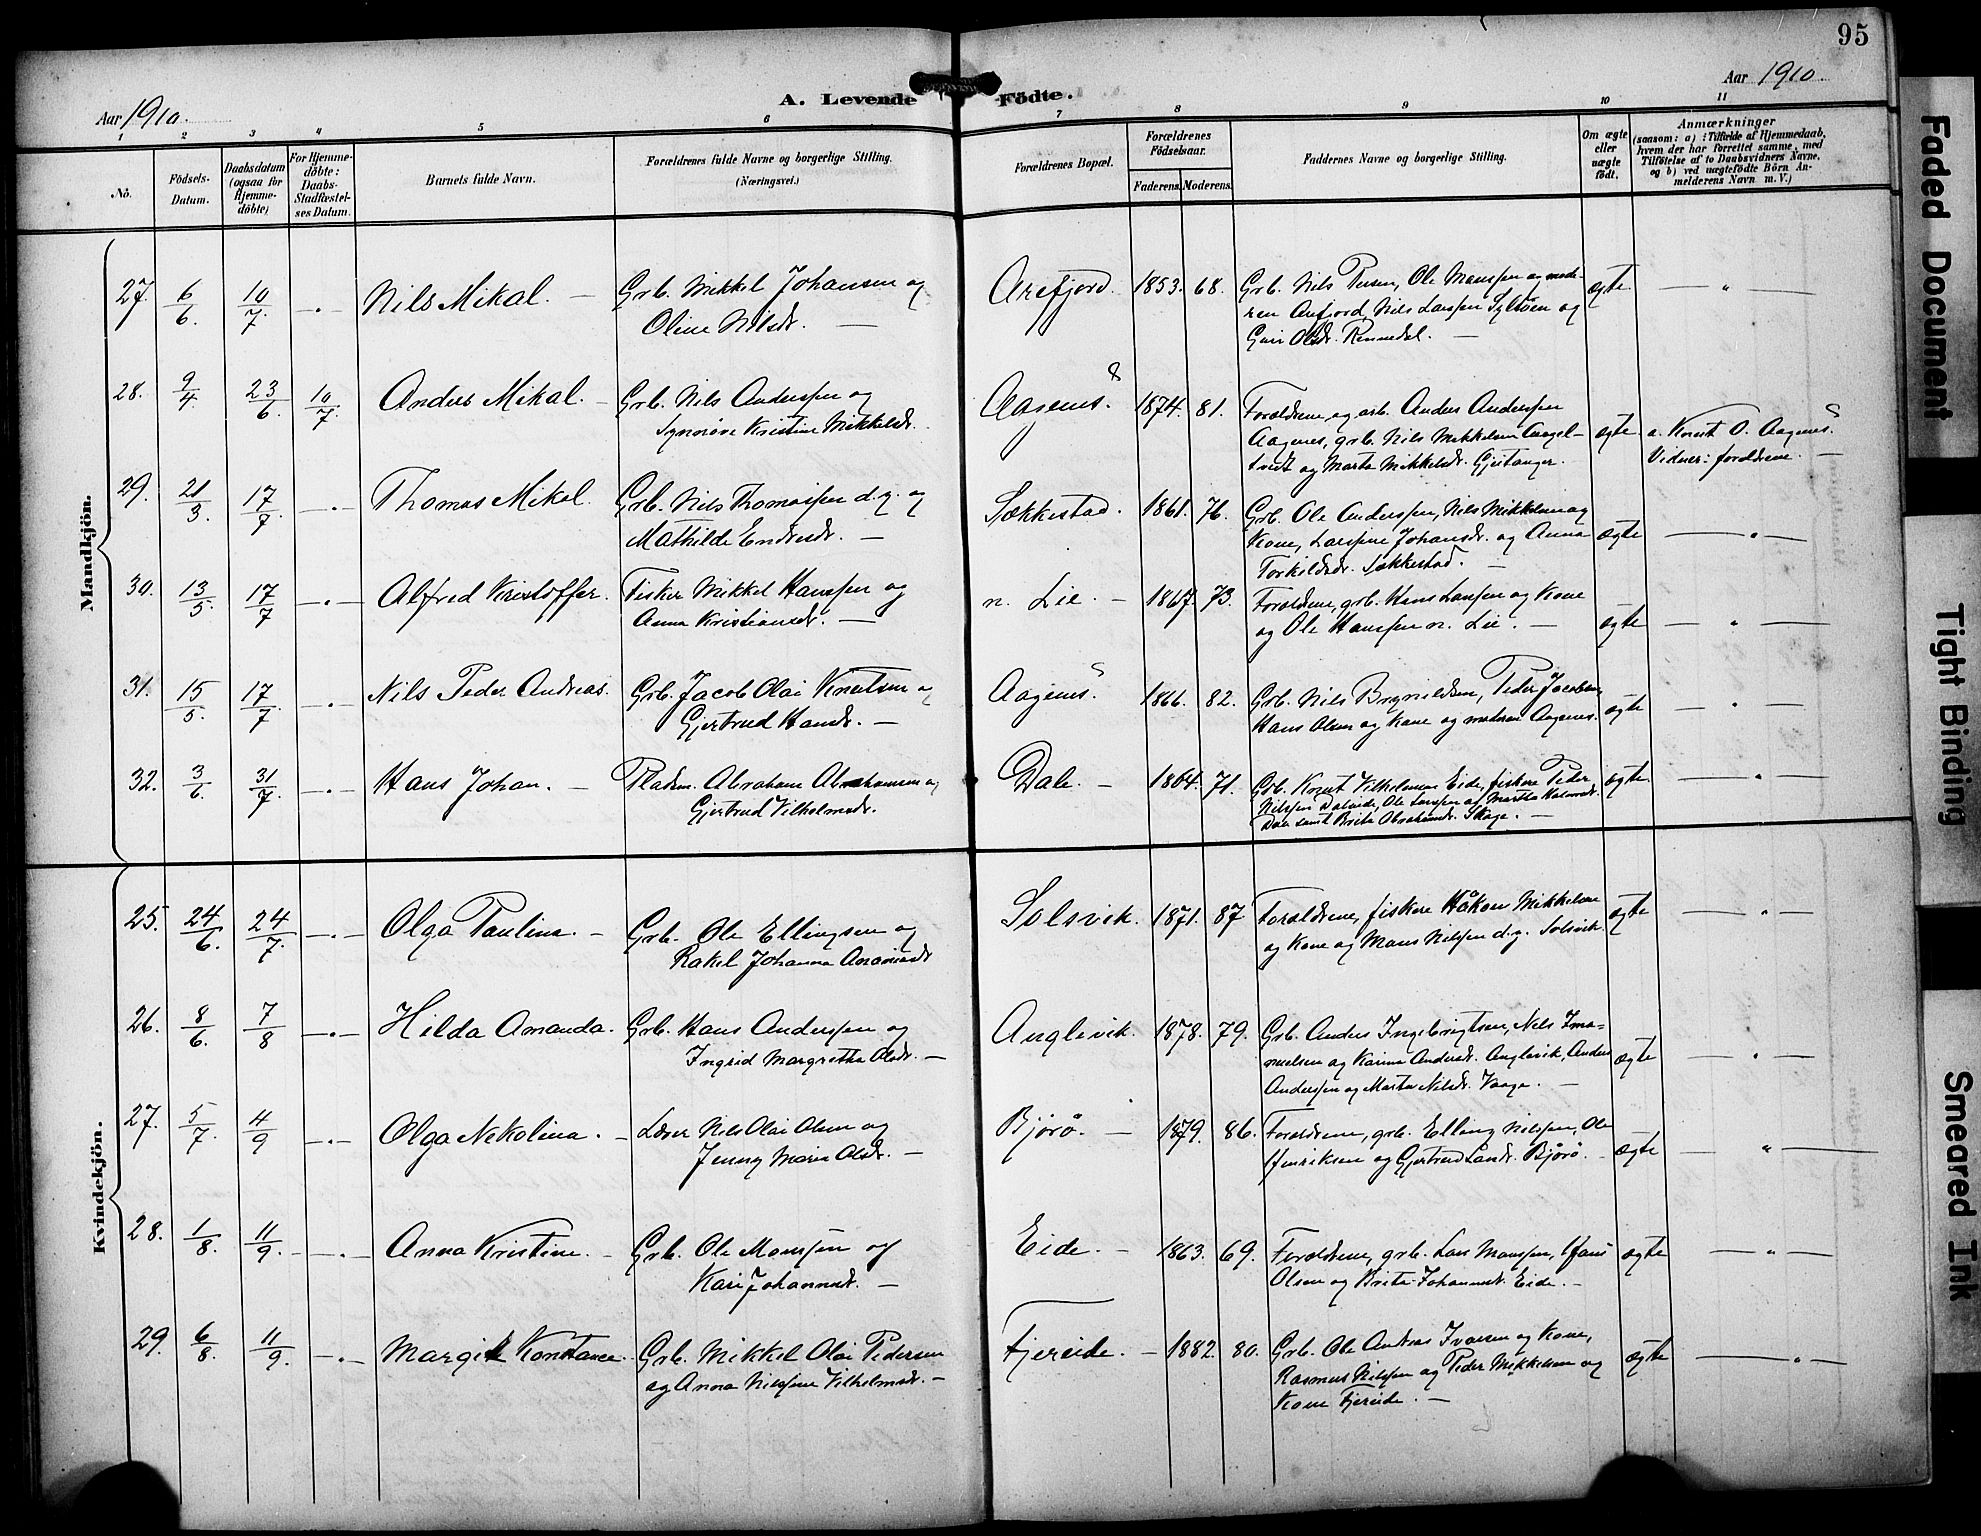 95
Aar 1910.
A. Levende Födte.
Aar 1910.
1 2 3 4 5 6 7 8 9 10 11
No.
Födsels-
Datum.
Daabsdatum
(ogsaa for
Hjemme-
döbte)
For Hjemme-
döbte:
Daabs-
Stadfæstel-
ses Datum.
Barnets fulde Navn.
Forældrenes fulde Navne og borgerlige Stilling.
(Næringsvei.)
Forældrenes Bopæl.
Forældrenes
Födselsaar.
Faderens. Moderens.
Faddernes Navne og borgerlige Stilling.
Om ægte
eller
uægte
födt.
Anmærkninger
(saasom: a) i Tilfælde af Hjemmedaab,
hvem der har forrettet samme, med
Tilföielse af to Daabsvidners Navne,
og b) ved uægtefödte Börn An-
melderens Navn m. V.)
Mandkjön.
27. 6/6. 10/7. Nils Mikal. Grb. Mikkel Johansen og
Oline Nilsdr.
Arefjord. 1853. 68. Grb. Nils Persen, Ole Monssen og mode-
ren Arefjord, Nils Larssen Syltöen og
Guri Olsdr. Rennedal.
ægte
28. 9/4. 23/6. 10/7. Anders Mikal. Grb. Nils Anderssen og
Synnöve Kristine Mikkelsdr.
Aagenes. 1874. 81. Forældrene og arb. Anders Anderssen
Aagenes, grb. Nils Mikkelsen
og Marta Mikkelsdr. Gjeitanger.
ægte a. Knut O. Aagenes.
Vidner: forældrene.
29. 21/3. 17/7. Thomas Mikal. Grb. Nils Thomassen d.y. og
Mathilde Endresdr.
Sækkestad. 1861. 76. Grb. Ole Anderssen, Nils Mikkelsen og
Kone, Larssine Johansdr. og Anna
Torkildsdr. Sækkestad.
ægte
30. 13/5. 17/7 Alfred Kristoffer. Fisker Mikkel Hanssen og
Anna Kristiansdr.
n. Lie. 1867. 73. Forældrene, grb. Hans Larssen og Kone
og Ole Hanssen n. Lie.
ægte
31. 15/5. 17/7 Nils Peder Andreas. Grb. Jacob Olai Knutsen og
Gjertrud Hansdr.
Aagenes. 1866. 82. Grb. Nils Brynildsen, Peder Jacobsen,
Hans Olsen og Kone og moderen Aagenes.
ægte
32. 3/6. 31/7. Hans Johan. Pladsm. Abraham Abrahamsen og
Gjertrud Vilhelmsdr.
Dale. 1864. 71. Grb. Knut Vilhelmsen Eide, fiskere Peder
Nilssen Ole Larssen og Martha
samt Brita Abrahamsdr. Skoge.
ægte
Kvindekjön.
25. 24/6. 24/7. Olga Paulina. Grb. Ole Ellingsen og
Rakel Johanna Ananiasdr.
Solsvik. 1871. 87 Forældrene, fisker Håkon Mikkelsen
og Kone og Mons Nilssen d.y. Solsvik.
ægte
26. 8/6. 7/8 Hilda Amanda. Grb. Hans Anderssen og
Ingrid Margretha Olsdr.
Anglevik. 1878. 79. Grb. Anders Ingebrigtsen, Nils Ima-
nuelsen og Karina Andersdr. Anglevik, Anders
Anderssen og Marta Nilsdr. Vaage.
ægte
27. 5/7. 4/9 Olga Nekolina. Lærer Nils Olai Olsen og
Jenny Maria Olsdr.
Björö. 1879. 86. Forældrene, grb. Elling Nilssen, Ole
Henriksen og Gjertrud Larsdr. Björö.
ægte
28. 1/8. 11/9. Anna Kristine. Grb. Ole Monssen og
Kari Johannesdr.
Eide. 1863. 69. Forældrene, grb. Lars Monssen, Hans
Olsen og Brita Johannesdr. Eide.
ægte
29. 6/8. 11/9. Margit Konstance. Grb. Mikkel Olai Pedersen
og Anna Nilssine Vilhelmsdr.
Fjereide. 1882. 80. Grb. Ole Andreas Ivarsen og Kone,
Rasmus Nilssen og Peder Mikkelsen og
Kone Fjereide.
ægte
Faded Document
Tight Binding
Smeared Ink